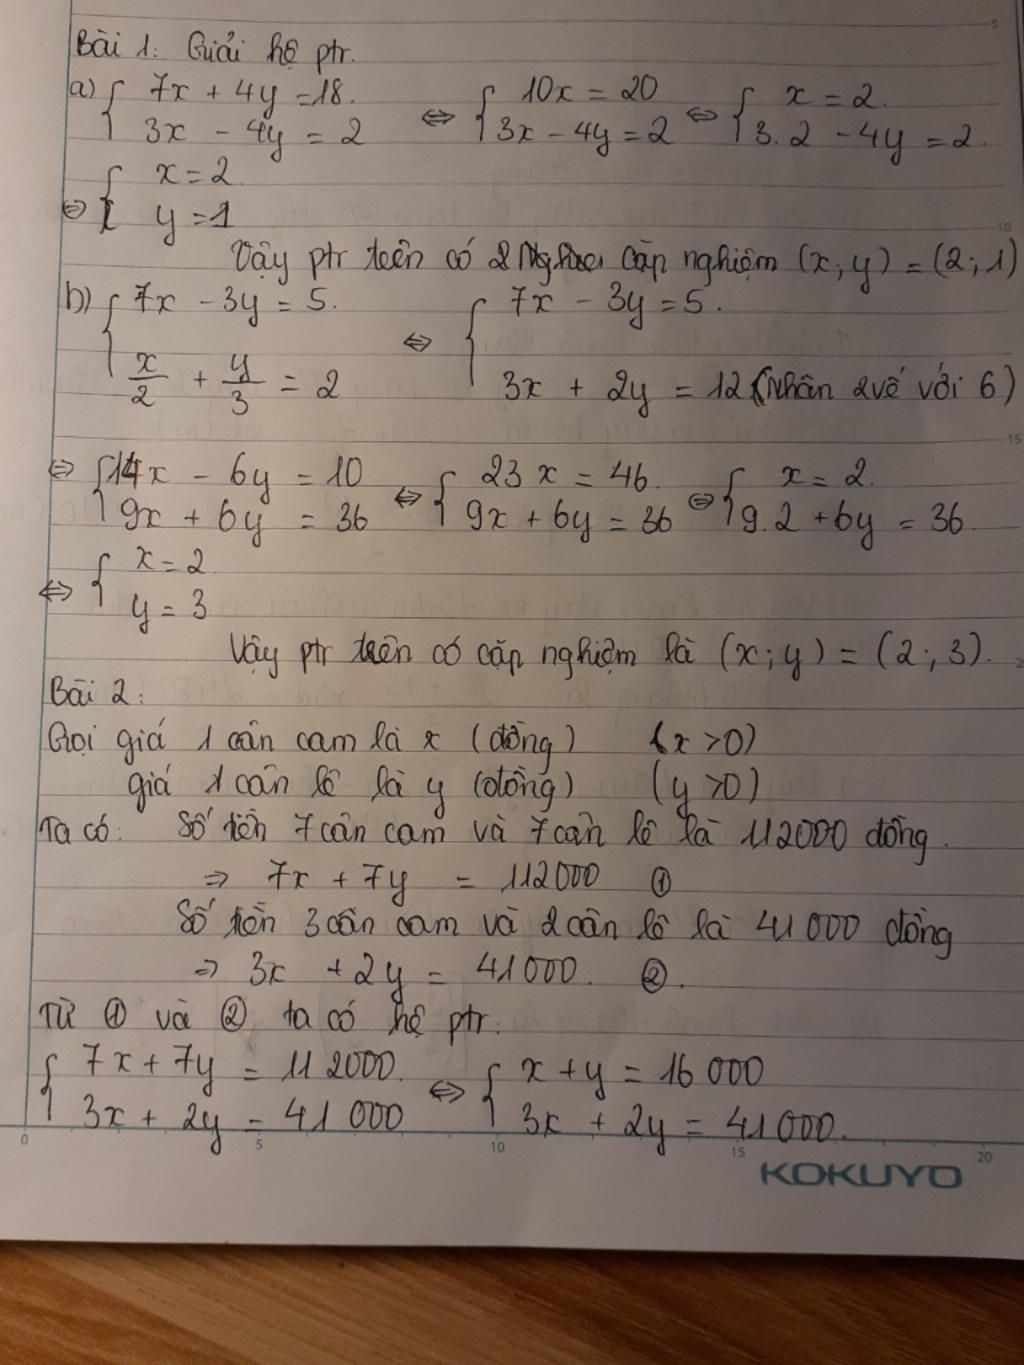 Bài 1: Giải hệ ptr.
a) { 7x + 4y = 18. ⇔ { 10x = 20 ⇔ { x = 2.
3x - 4y = 2 3x - 4y = 2 3.2 - 4y = 2.
⇔ { x = 2
y = 1
Vậy ptr trên có 2 cặp nghiệm (x; y) = (2; 1)
b) { 7x - 3y = 5. ⇔ { 7x - 3y = 5.
x/2 + y/3 = 2 3x + 2y = 12 (Nhân 2 vế với 6)
⇔ { 14x - 6y = 10 ⇔ { 23x = 46. ⇔ { x = 2.
9x + 6y = 36 9x + 6y = 36 9.2 + 6y = 36.
⇔ { x = 2
y = 3
Vậy ptr trên có cặp nghiệm là (x; y) = (2; 3).
Bài 2:
Gọi giá 1 cân cam là x (đồng) (x > 0)
giá 1 cân lê là y (đồng) (y > 0)
Ta có: Số tiền 7 cân cam và 7 cân lê là 112000 đồng.
⇒ 7x + 7y = 112000 ①
Số tiền 3 cân cam và 2 cân lê là 41000 đồng
⇒ 3x + 2y = 41000. ②.
Từ ① và ② ta có hệ ptr:
{ 7x + 7y = 112000. ⇔ { x + y = 16000
3x + 2y = 41000 3x + 2y = 41000.
0 5 10 15 20
KOKUYO